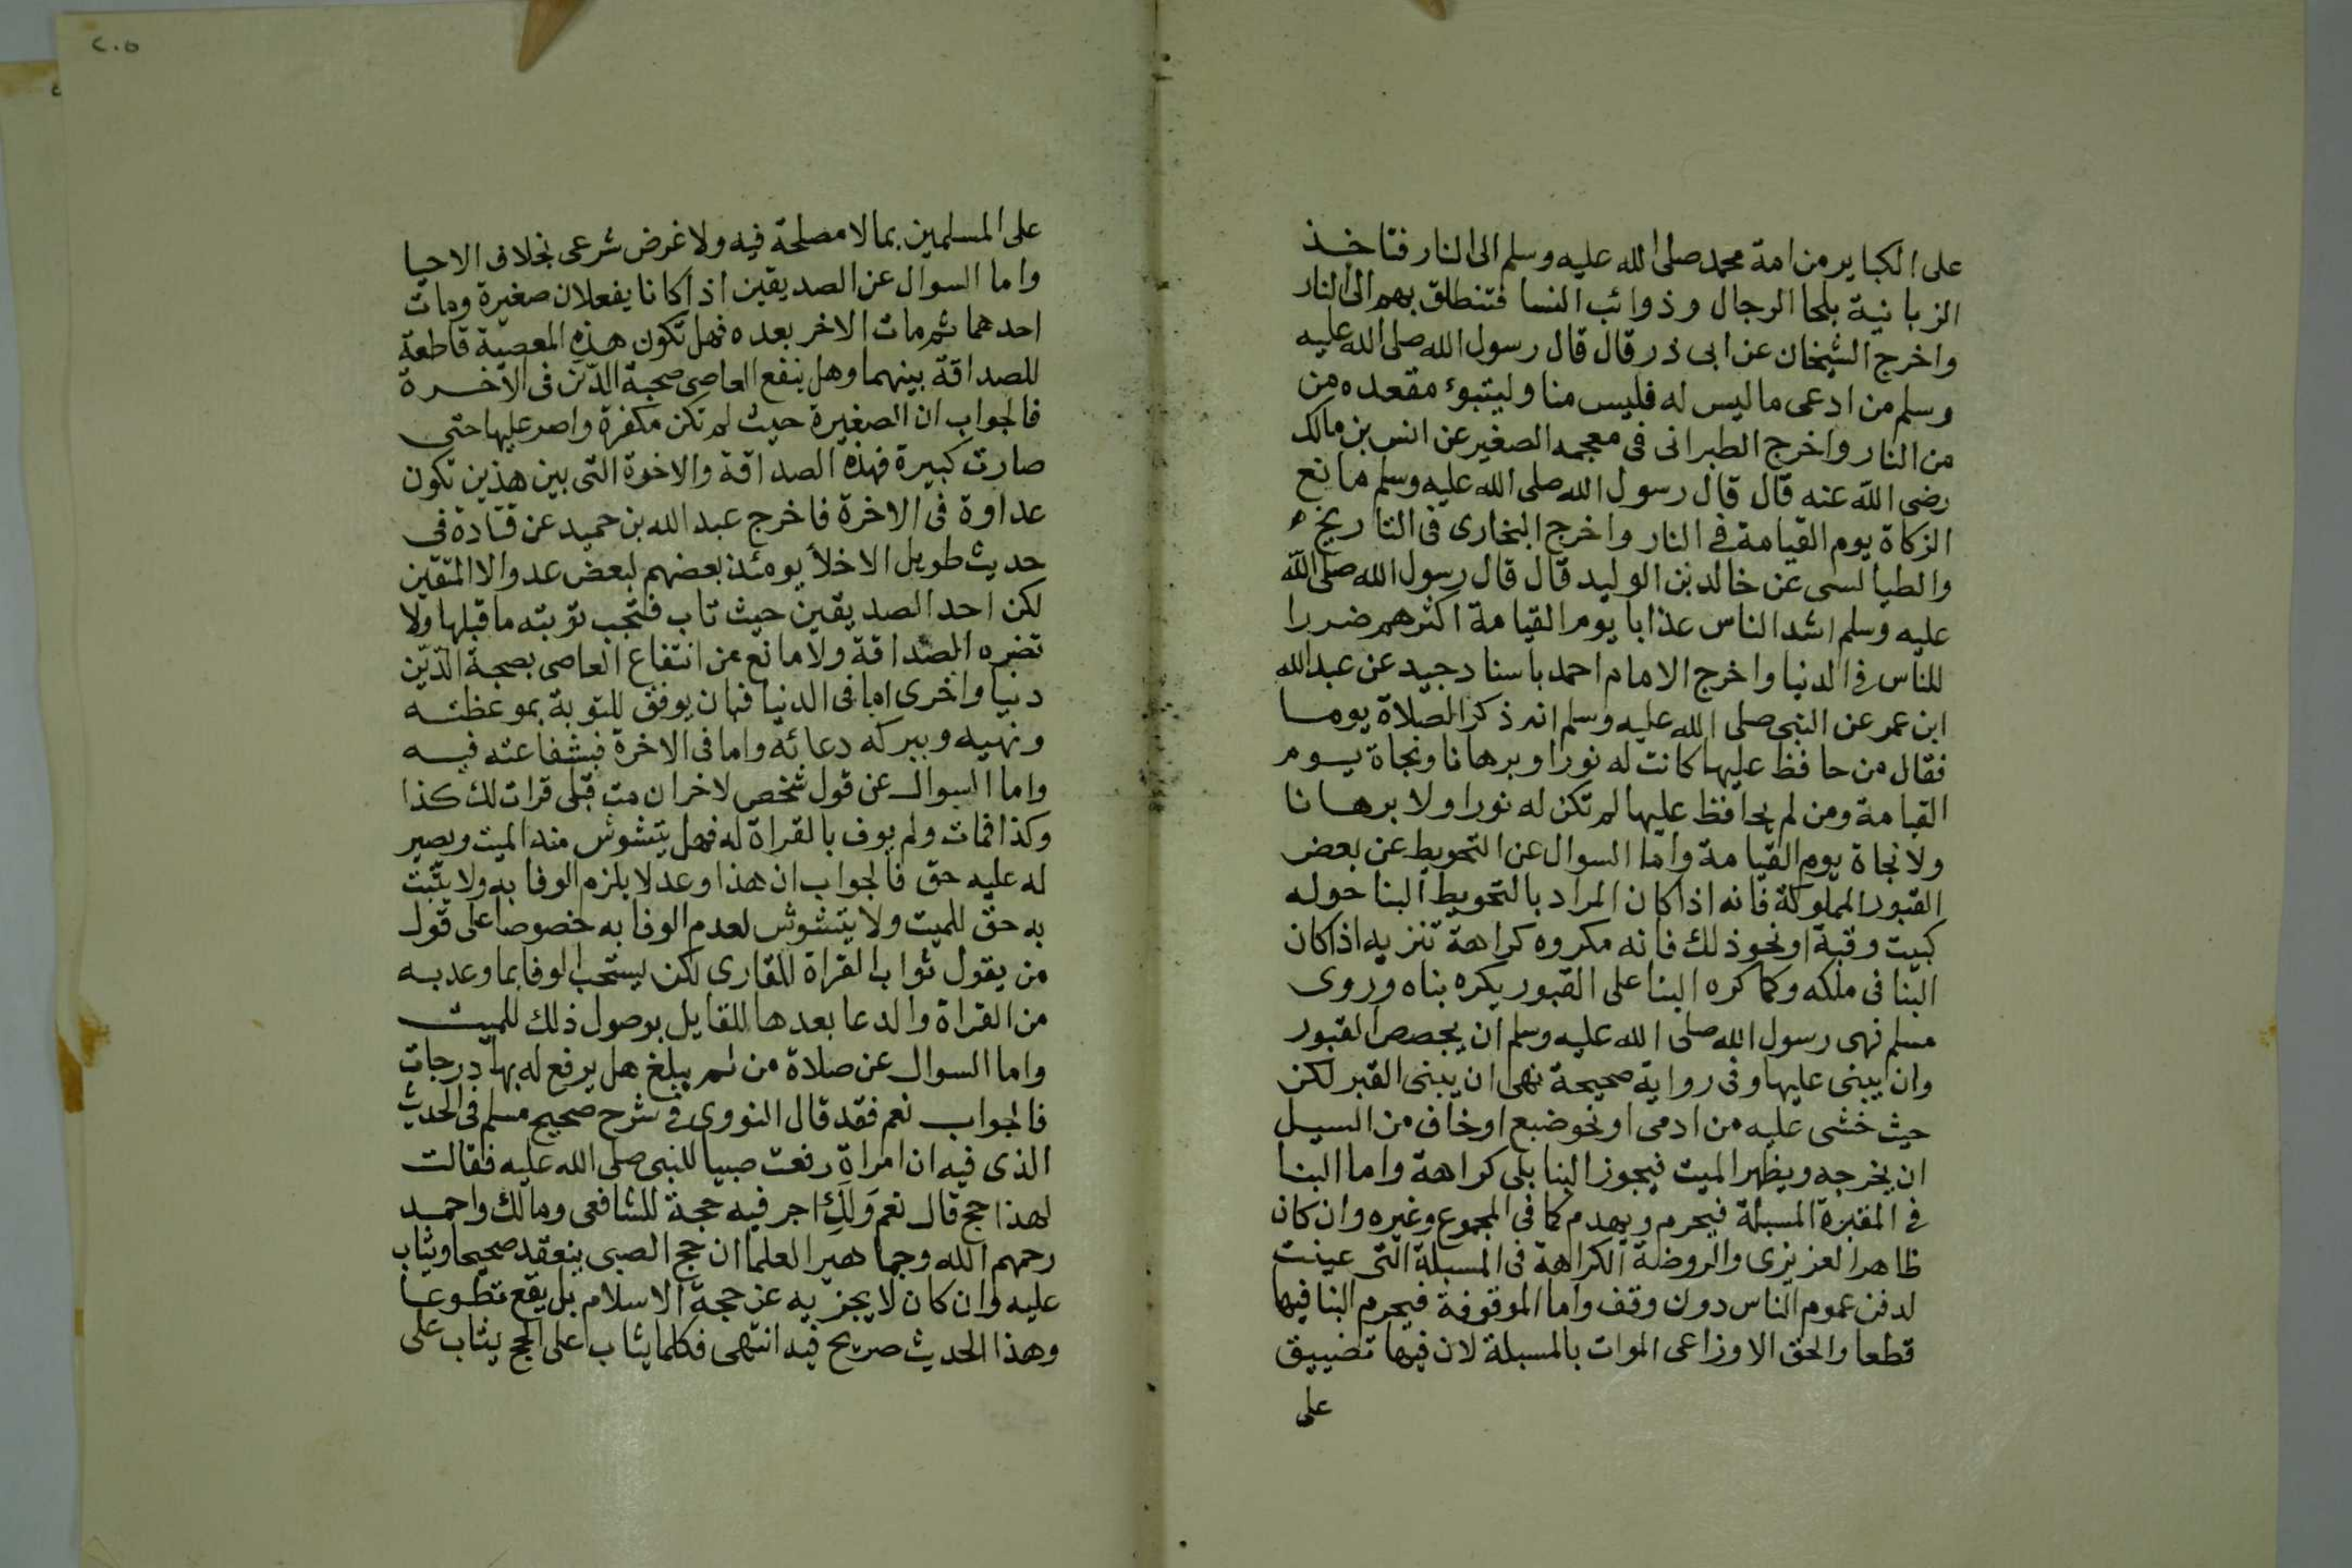 على الكباير من امة محمد صلى الله عليه وسلم الى النار فتاخذ
الزبانية بلحا الرجال وذوائب النسا فتنطلق بهم الى النار
واخرج الشيخان عن ابى ذر قال قال رسول الله صلى الله عليه
وسلم من ادعى ما ليس له فليس منا وليتبوء مقعده من
من النار واخرج الطبرانى فى معجمه الصغير عن انس بن مالك
رضى الله عنه قال قال رسول الله صلى الله عليه وسلم مانع
الزكاة يوم القيامة فى النار واخرج البخارى فى التاريخ
والطيالسى عن خالد بن الوليد قال قال رسول الله صلى الله
عليه وسلم اشد الناس عذابا يوم القيامة اكثرهم ضررا
للناس فى الدنيا واخرج الامام احمد باسناد جيد عن عبد الله
ابن عمر عن النبى صلى الله عليه وسلم انه ذكر الصلاة يوما
فقال من حافظ عليها كانت له نورا وبرهانا ونجاة يوم
القيامة ومن لم يحافظ عليها لم تكن له نورا ولا برهانا
ولا نجاة يوم القيامة واما السوال عن التحويط عن بعض
القبور المملوكة فانه اذا كان المراد بالتحويط البنا حوله
كبيت وقبة او نحو ذلك فانه مكروه كراهة تنزيه اذا كان
البنا فى ملكه وكما كره البنا على القبور يكره بناه وروى
مسلم نهى رسول الله صلى الله عليه وسلم ان يجصص القبور
وان يبنى عليها وفى رواية صحيحة نهى ان يبنى القبر لكن
حيث خشى عليه من ادمى او نحو ضبع او خاف من السيل
ان يخرجه ويظهر الميت فيجوز البنا بلى كراهة واما البنا
فى المقبرة المسبلة فيحرم ويهدم كما فى المجموع وغيره وان كان
ظاهر العزيزى والروضة الكراهة فى المسبلة التى عينت
لدفن عموم الناس دون وقف واما الموقوفة فيحرم البنا فيها
قطعا والحق الاوزاعى الموات بالمسبلة لان فيها تضييق
على
٢٠٥
على المسلمين بما لا مصلحة فيه ولا غرض شرعى بخلاف الاحيا
واما السوال عن الصديقين اذا كانا يفعلان صغيرة ومات
احدهما ثم مات الاخر بعده فهل تكون هذه المعصية قاطعة
للصداقة بينهما وهل ينفع العاصى صحبة الدّين فى الاخرة
فالجواب ان الصغيرة حيث لم تكن مكفرة واصر عليها حتى
صارت كبيرة فهذه الصداقة والاخوة التى بين هذين تكون
عداوة فى الاخرة فاخرج عبد الله بن حميد عن قتادة فى
حديث طويل الاخلأ يومئذ بعضهم لبعض عدو الا المتقين
لكن احد الصديقين حيث تاب فتجب توبته ما قبلها ولا
تضره الصداقة ولا مانع من انتفاع العاصى بصحبة الدّيّن
دنيا واخرى اما فى الدنيا فبان يوفق للتوبة بموعظته
ونهيه وببركه دعائه واما فى الاخرة فبشفاعته فيه
واما السوال عن قول شخص لاخر ان مت قبلى قرات لك كذا
وكذا فمات ولم يوف بالقراة له فهل يتشوش منه الميت ويصير
له عليه حق فالجواب ان هذا وعد لا يلزم الوفا به ولا يثبت
به حق للميت ولا يتشوش لعدم الوفا به خصوصا على قول
من يقول ثواب القراة للقارى لكن يستحب الوفا بما وعد به
من القراة والدعا بعدها للقايل بوصول ذلك للميت
واما السوال عن صلاة من لم يبلغ هل يرفع له بها درجات
فالجواب نعم فقد قال النووى فى شرح صحيح مسلم فى الحديث
الذى فيه ان امراة رفعت صبيا للنبى صلى الله عليه فقالت
لهذا حج قال نعم وَلَكِ اجر فيه حجة للشافعى ومالك واحمد
رحمهم الله وجماهير العلما ان حج الصبى ينعقد صحيحا ويثاب
عليه وان كان لا يجزيه عن حجة الاسلام بل يقع تطوعا
وهذا الحديث صريح فيه انتهى فكلما يثاب على الحج يثاب على